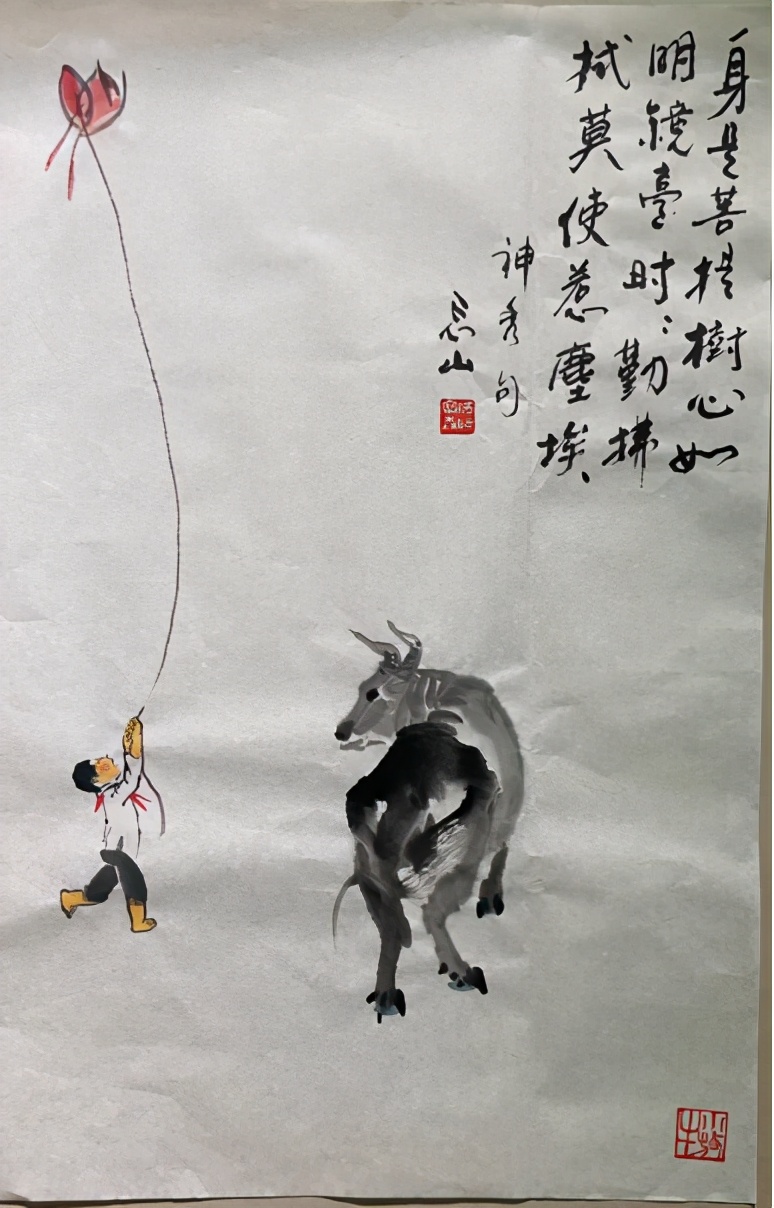 身是菩提樹心如
明鏡臺时々勤拂
拭莫使惹塵埃、
神秀句
山